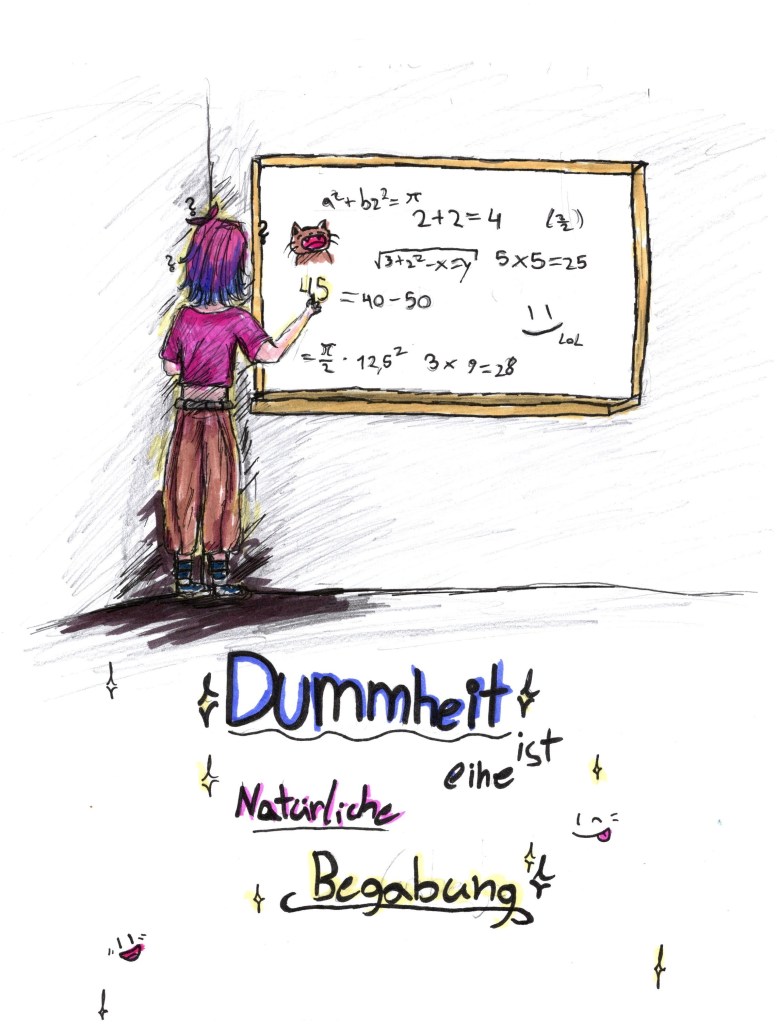 a²+b2²=π
2+2=4
√3+2²-x=y
5×5=25
45 =40-50
LOL
=π/2 · 12,5²
3× 9=28
Dummheit
ist
eine
Natürliche
Begabung